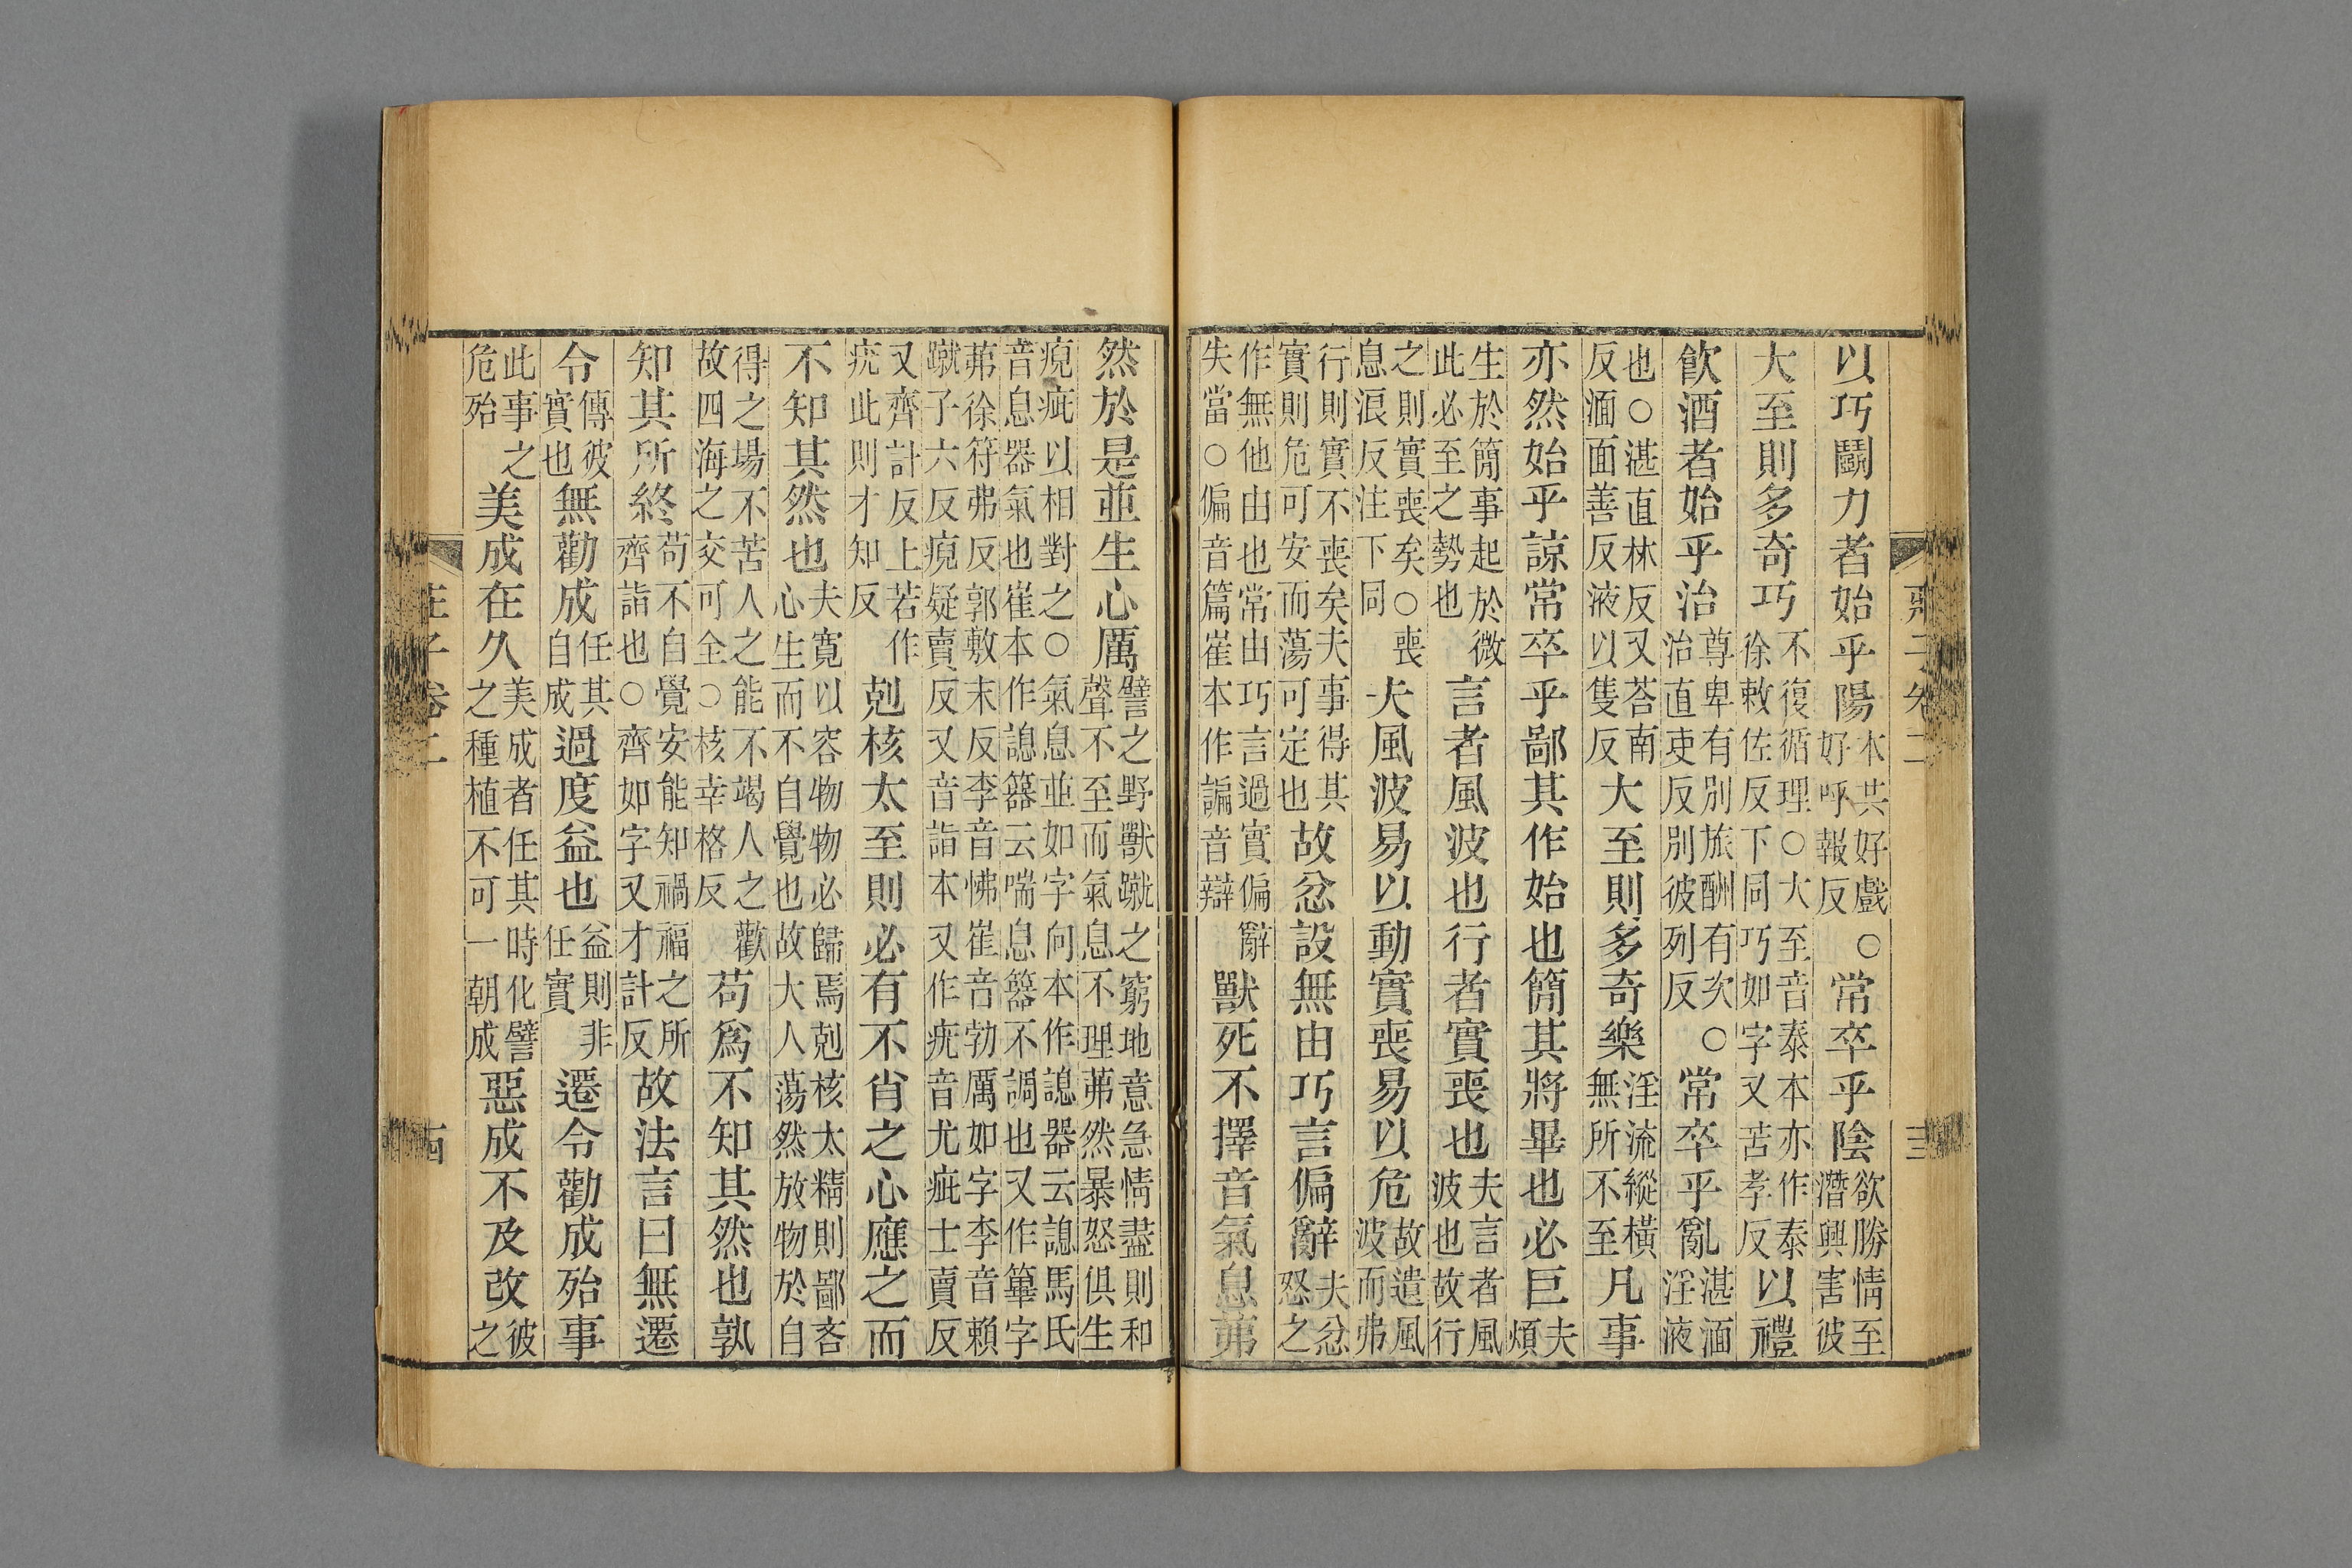 以巧鬭力者始乎陽本共好戲○好呼報反常卒乎陰欲勝情至潛興害彼
大至則多奇巧不復循理○大至音泰本亦作泰徐敕佐反下同巧如字又苦孝反以禮
飮酒者始乎治尊卑有別旅酬有次○治直吏反別彼列反常卒乎亂湛湎淫液
也○湛直林反又荅南反湎面善反液以隻反大至則多奇樂淫流縱橫無所不至凡事
亦然始乎諒常卒乎鄙其作始也簡其將畢也必巨夫煩
生於簡事起於微此必至之勢也言者風波也行者實喪也夫言者風波也故行
之則實喪矣○喪息浪反注下同夫風波易以動實喪易以危故遣風波而弗
行則實不喪矣夫事得其實則危可安而蕩可定也故忿設無由巧言偏辭夫忿怒之
作無他由也常由巧言過實偏辭失當○偏音篇崔本作諞音辯獸死不擇音氣息茀
然於是並生心厲譬之野獸蹴之窮地意急情盡則和聲不至而氣息不理茀然暴怒俱生
疣疵以相對之○氣息並如字向本作謥器云謥馬氏音息器氣也崔本作謥籂云喘息籂不調也又作篳字
茀徐符弗反郭敷末反李音怫崔音勃厲如字李音賴蹴子六反疣疑賣反又音詣本又作疣音尤疵士賣反
又齊計反上若作疣此則才知反剋核太至則必有不肖之心應之而
不知其然也夫寬以容物物必歸焉剋核太精則鄙吝心生而不自覺也故大人蕩然放物於自
得之場不苦人之能不竭人之歡故四海之交可全○核幸格反苟爲不知其然也孰
知其所終苟不自覺安能知禍福之所齊詣也○齊如字又才計反故法言曰無遷
令傳彼實也無勸成任其自成過度益也益則非任實遷令勸成殆事
此事之危殆美成在久美成者任其時化譬之種植不可一朝成惡成不及改彼之
莊子卷二
三
莊子卷二
四